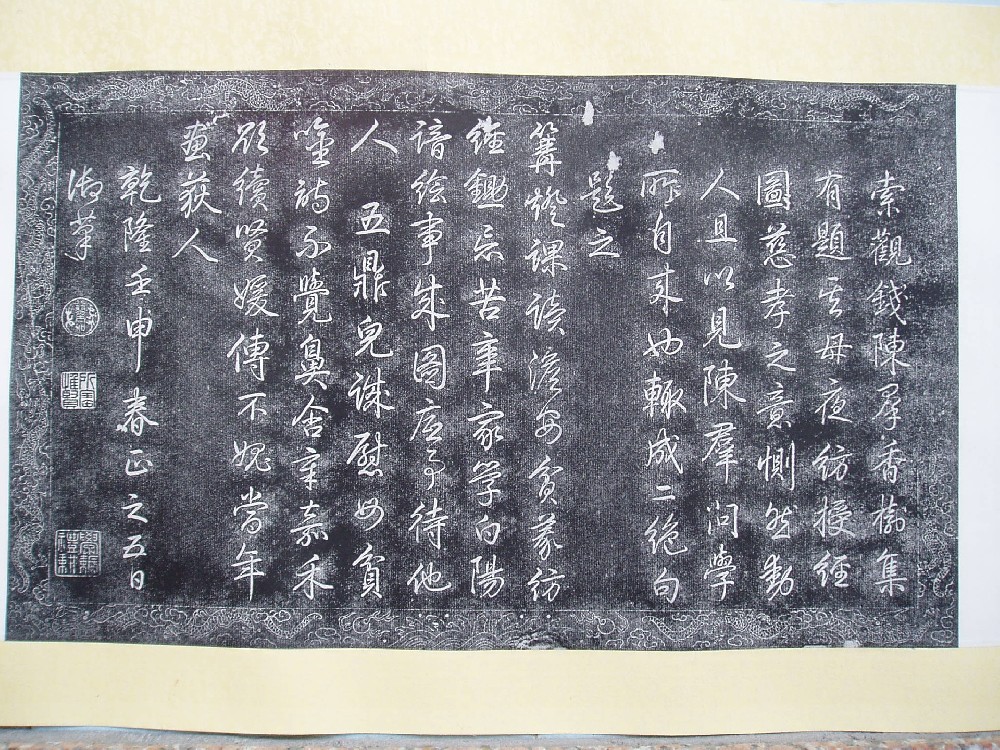 索觀錢陳羣香樹集
有題其母夜紡授經
圖慈孝之意惻然動
人且以見陳羣問學
所自來也輒成二絶句
題之
篝燈課讀澹安貧義紡
經鋤忘苦辛家學白陽
諳繪事成圖底事待他
人 五鼎兒誠慰母貧
吟詩不覺鼻含辛嘉禾
欲續賢媛傳不媿當年
畫荻人
乾隆壬申春正之五日
御筆